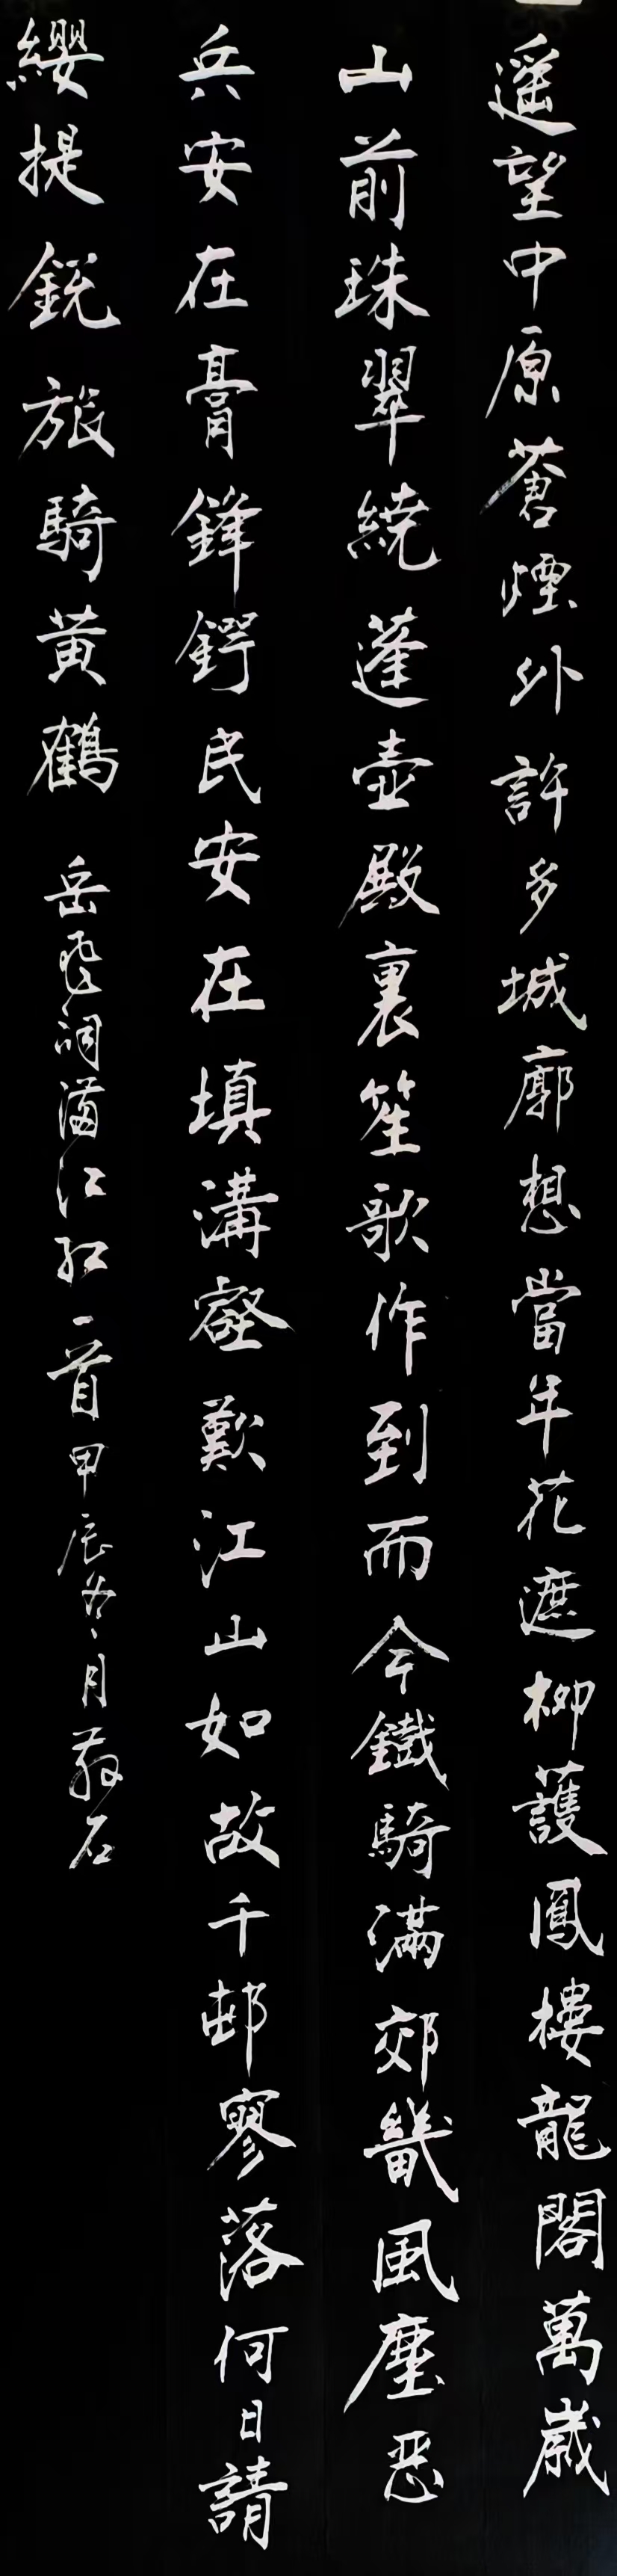 遥望中原蒼煙外許多城廓想當年花遮柳護鳳樓龍閣萬歲
山前珠翠繞蓬壺殿裏笙歌作到而今鐵騎滿郊畿風塵惡
兵安在膏鋒鍔民安在填溝壑歎江山如故千邨寥落何日請
纓提銳旅騎黃鶴
岳飛詞滿江紅一首甲辰冬月散石